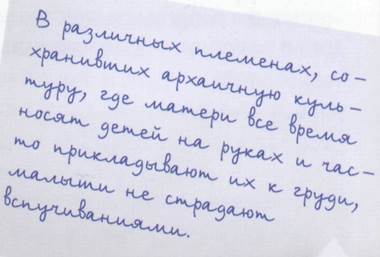 В различных племенах, со-
хранивших архаичную куль-
туру, где матери все время
носят детей на руках и час-
то прикладывают их к груди,
малыши не страдают
вспучиваниями.